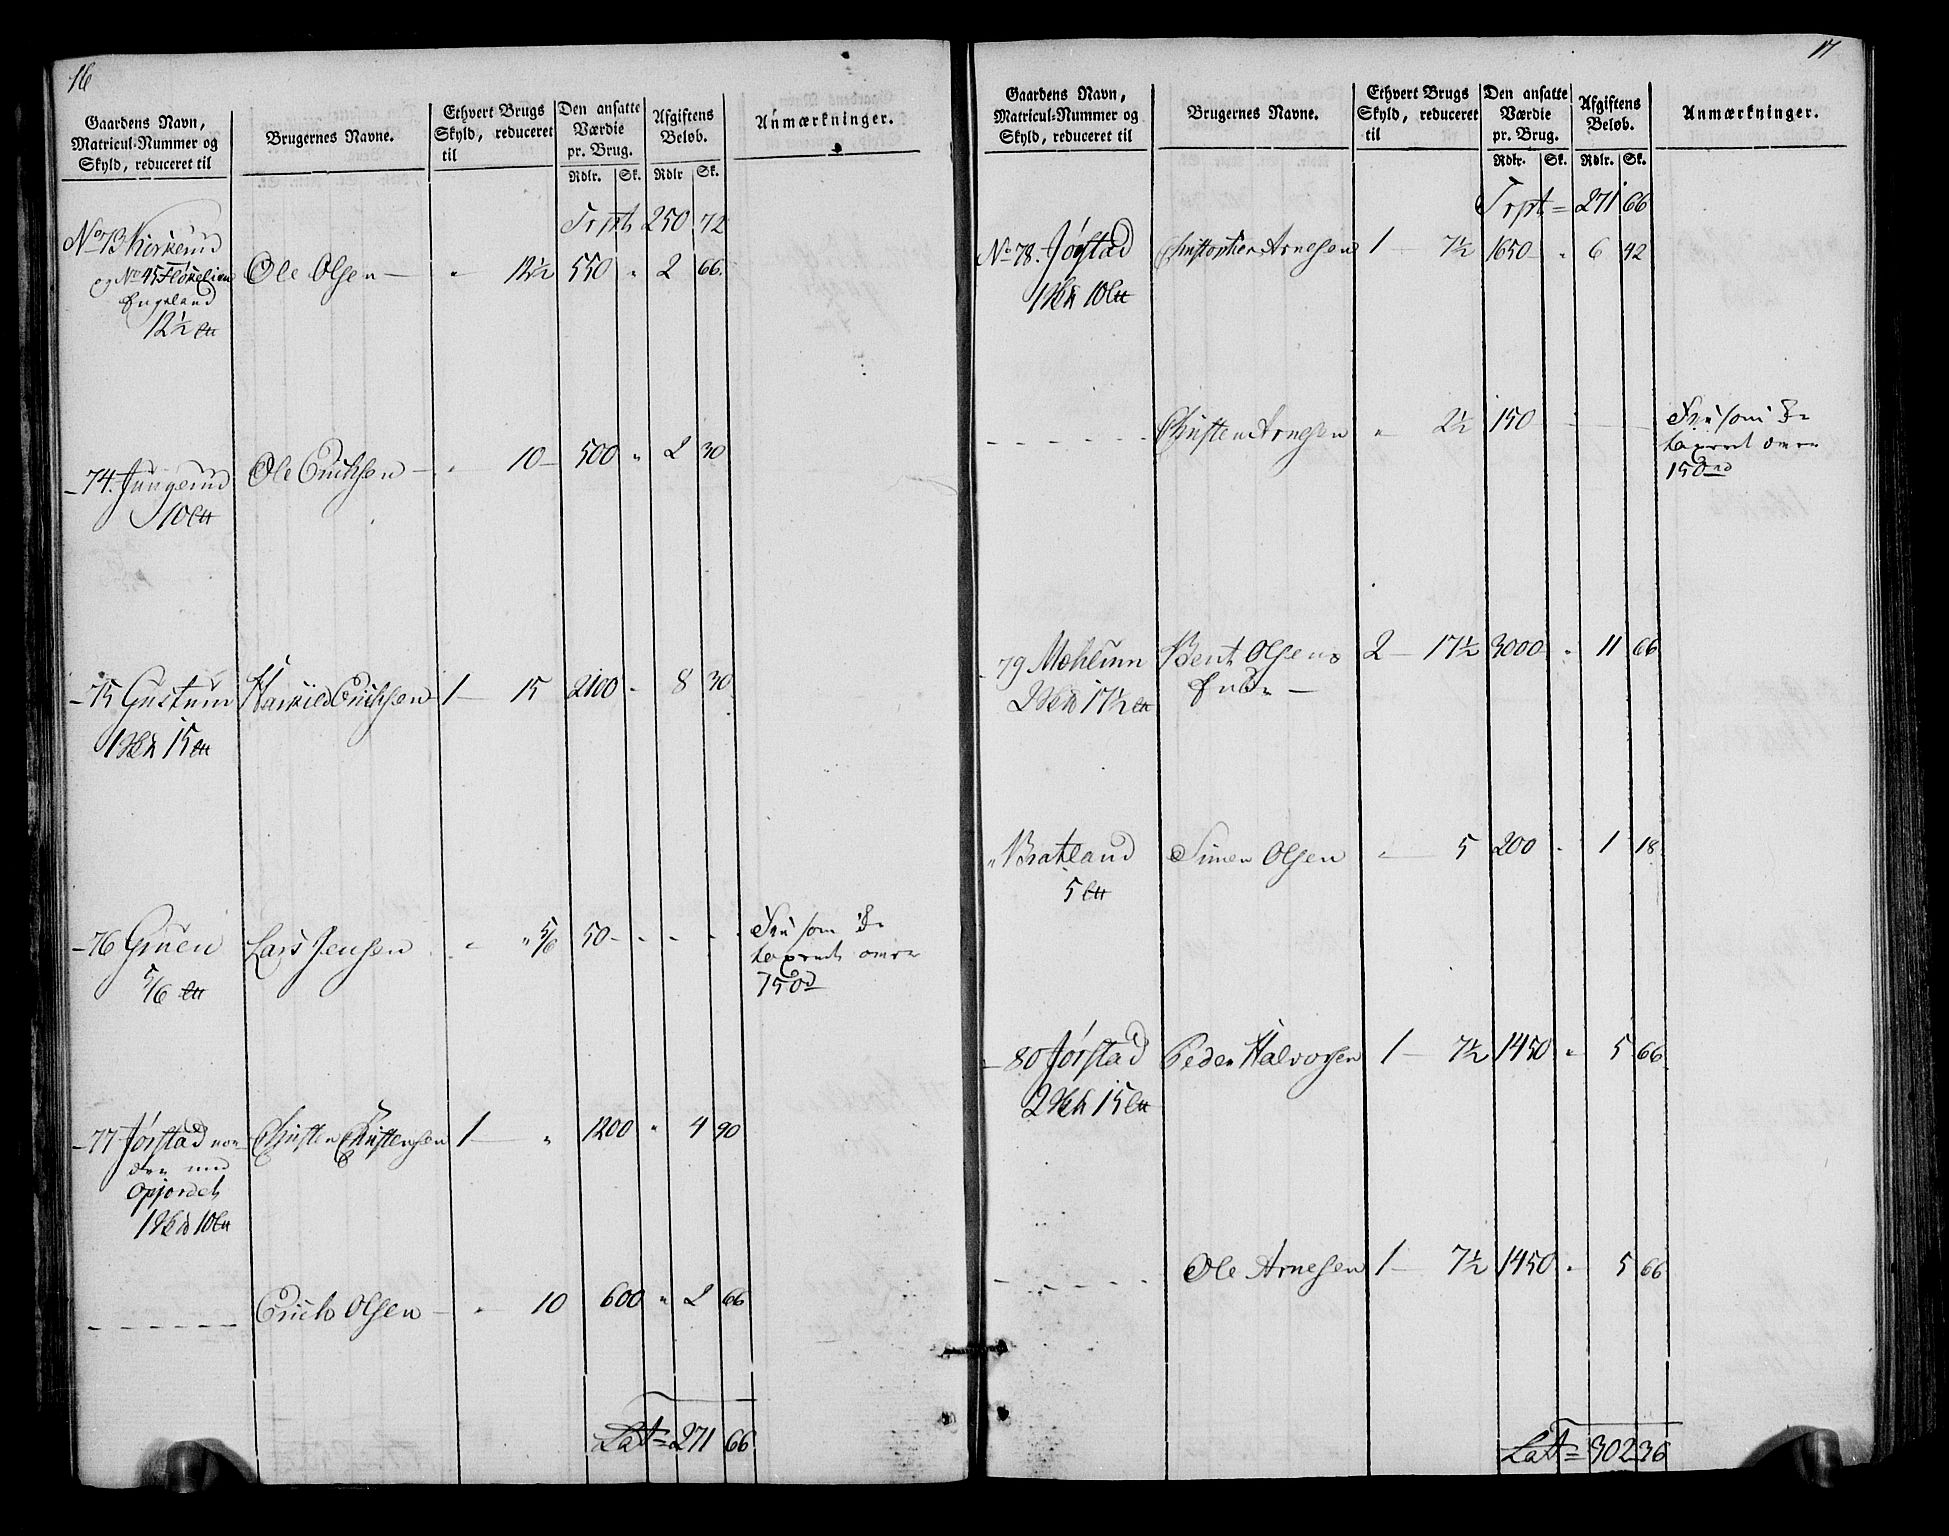 16
Gaardens Navn, Matricul-Nummer og Skyld, reduceret til | Brugernes Navne. | Ethvert Brugs Skyld, reduceret til | Den ansatte Værdie pr. Brug. Rdlr. Sk. | Afgiftens Beløb. Rdlr Sk. | Anmærkninger.
Trpt 250 72
No 73
og No 45 Ole Olsen — " 12½ 550 " 2 66
Engeland
12½ l℔
- 74. Ole Erichsen — " 10 — 500 " 2 30
10 l℔
- 75 Gustum Erichsen 1 — 15 2100 " 8 30
15 l℔
- 76 Gruen Lars Jensen " " 5/6 50 - - - - Fri som
5/6 l℔ taxeret
150
- 77 Jørstad Christen Christensen 1 — " 1200 " 4 90
Opjordet
10 l℔
- - - - - - Erich Olsen — " 10 600 " 2 66
Lat = 271 66
17
Gaardens Navn, Matricul-Nummer og Skyld, reduceret til | Brugernes Navne. | Ethvert Brugs Skyld, reduceret til | Den ansatte Værdie pr. Brug. Rdlr. Sk. | Afgiftens Beløb. Rdlr. Sk. | Anmærkninger.
Trpt = 271 66
No 78. Jørstad Christopher Arnesen 1 — 7½ 1650 — " 6 42
10 l℔
- - - - - - Christen Arnesen " 2½ 150 — — Fri som
taxeret
150
79 Mæhlum Bent Olsens 2 — 17½ 3000 " 11 66
17½ l℔ Enke —
" Bratland Simen Olsen " — 5 200 " 1 18
5 l℔
- 80 Jørstad Peder Halvorsen 1 — 7½ 1450 " 5 66
15 l℔
- - - - - - Ole Arnesen 1 — 7½ 1450 " 5 66
Lat = 302 36